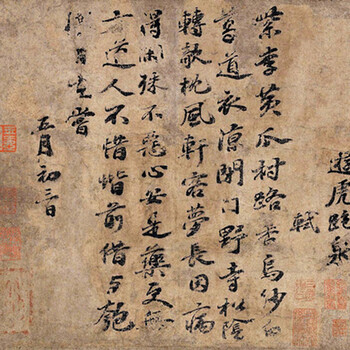 遊虎跑泉
軾
紫李黃瓜村路香烏紗白
葛道衣涼閉門野寺松陰
轉欹枕風軒客夢長因病
得閑殊不惡心安是藥更無
方道人不惜堦前借與匏
樽自在嘗
五月初三日